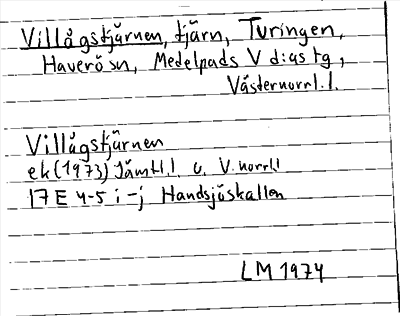 Villågstjärnen, tjärn, Turingen,
Haverö sn, Medelpads V d:as tg,
Västernorrl. l.
Villågstjärnen
ek (1973) Jämtl. l. o. V.norrl. l
17 E 4-5 i-j Handsjöskallen
LM 1974